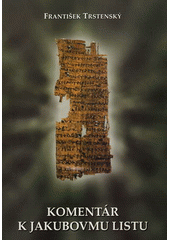 FRANTIŠEK TRSTENSKÝ
KOMENTÁR
K JAKUBOVMU LISTU